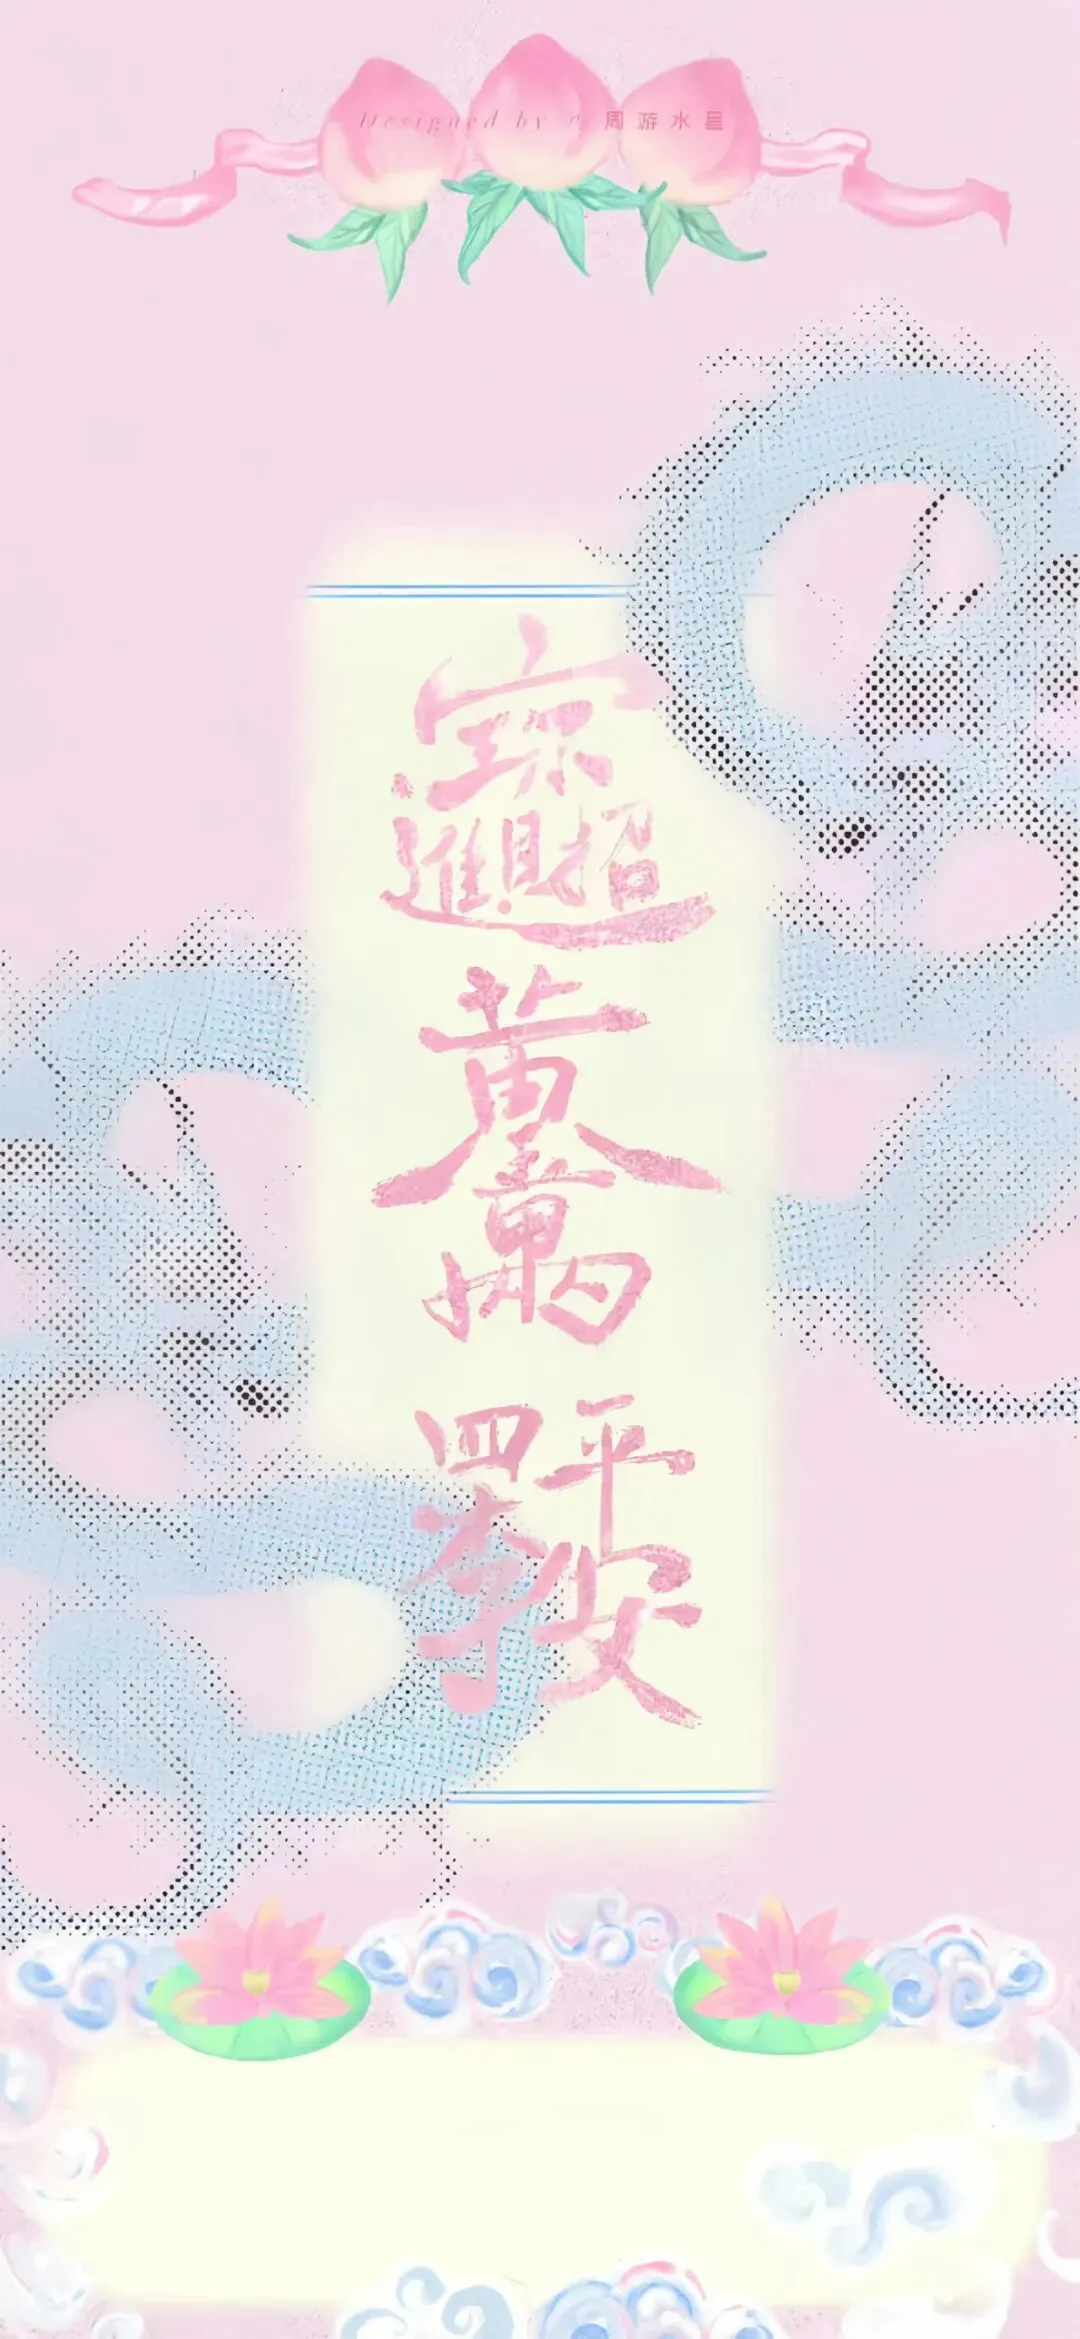 Designed by @周游水星
招財進寶
黃金萬兩
四季平安